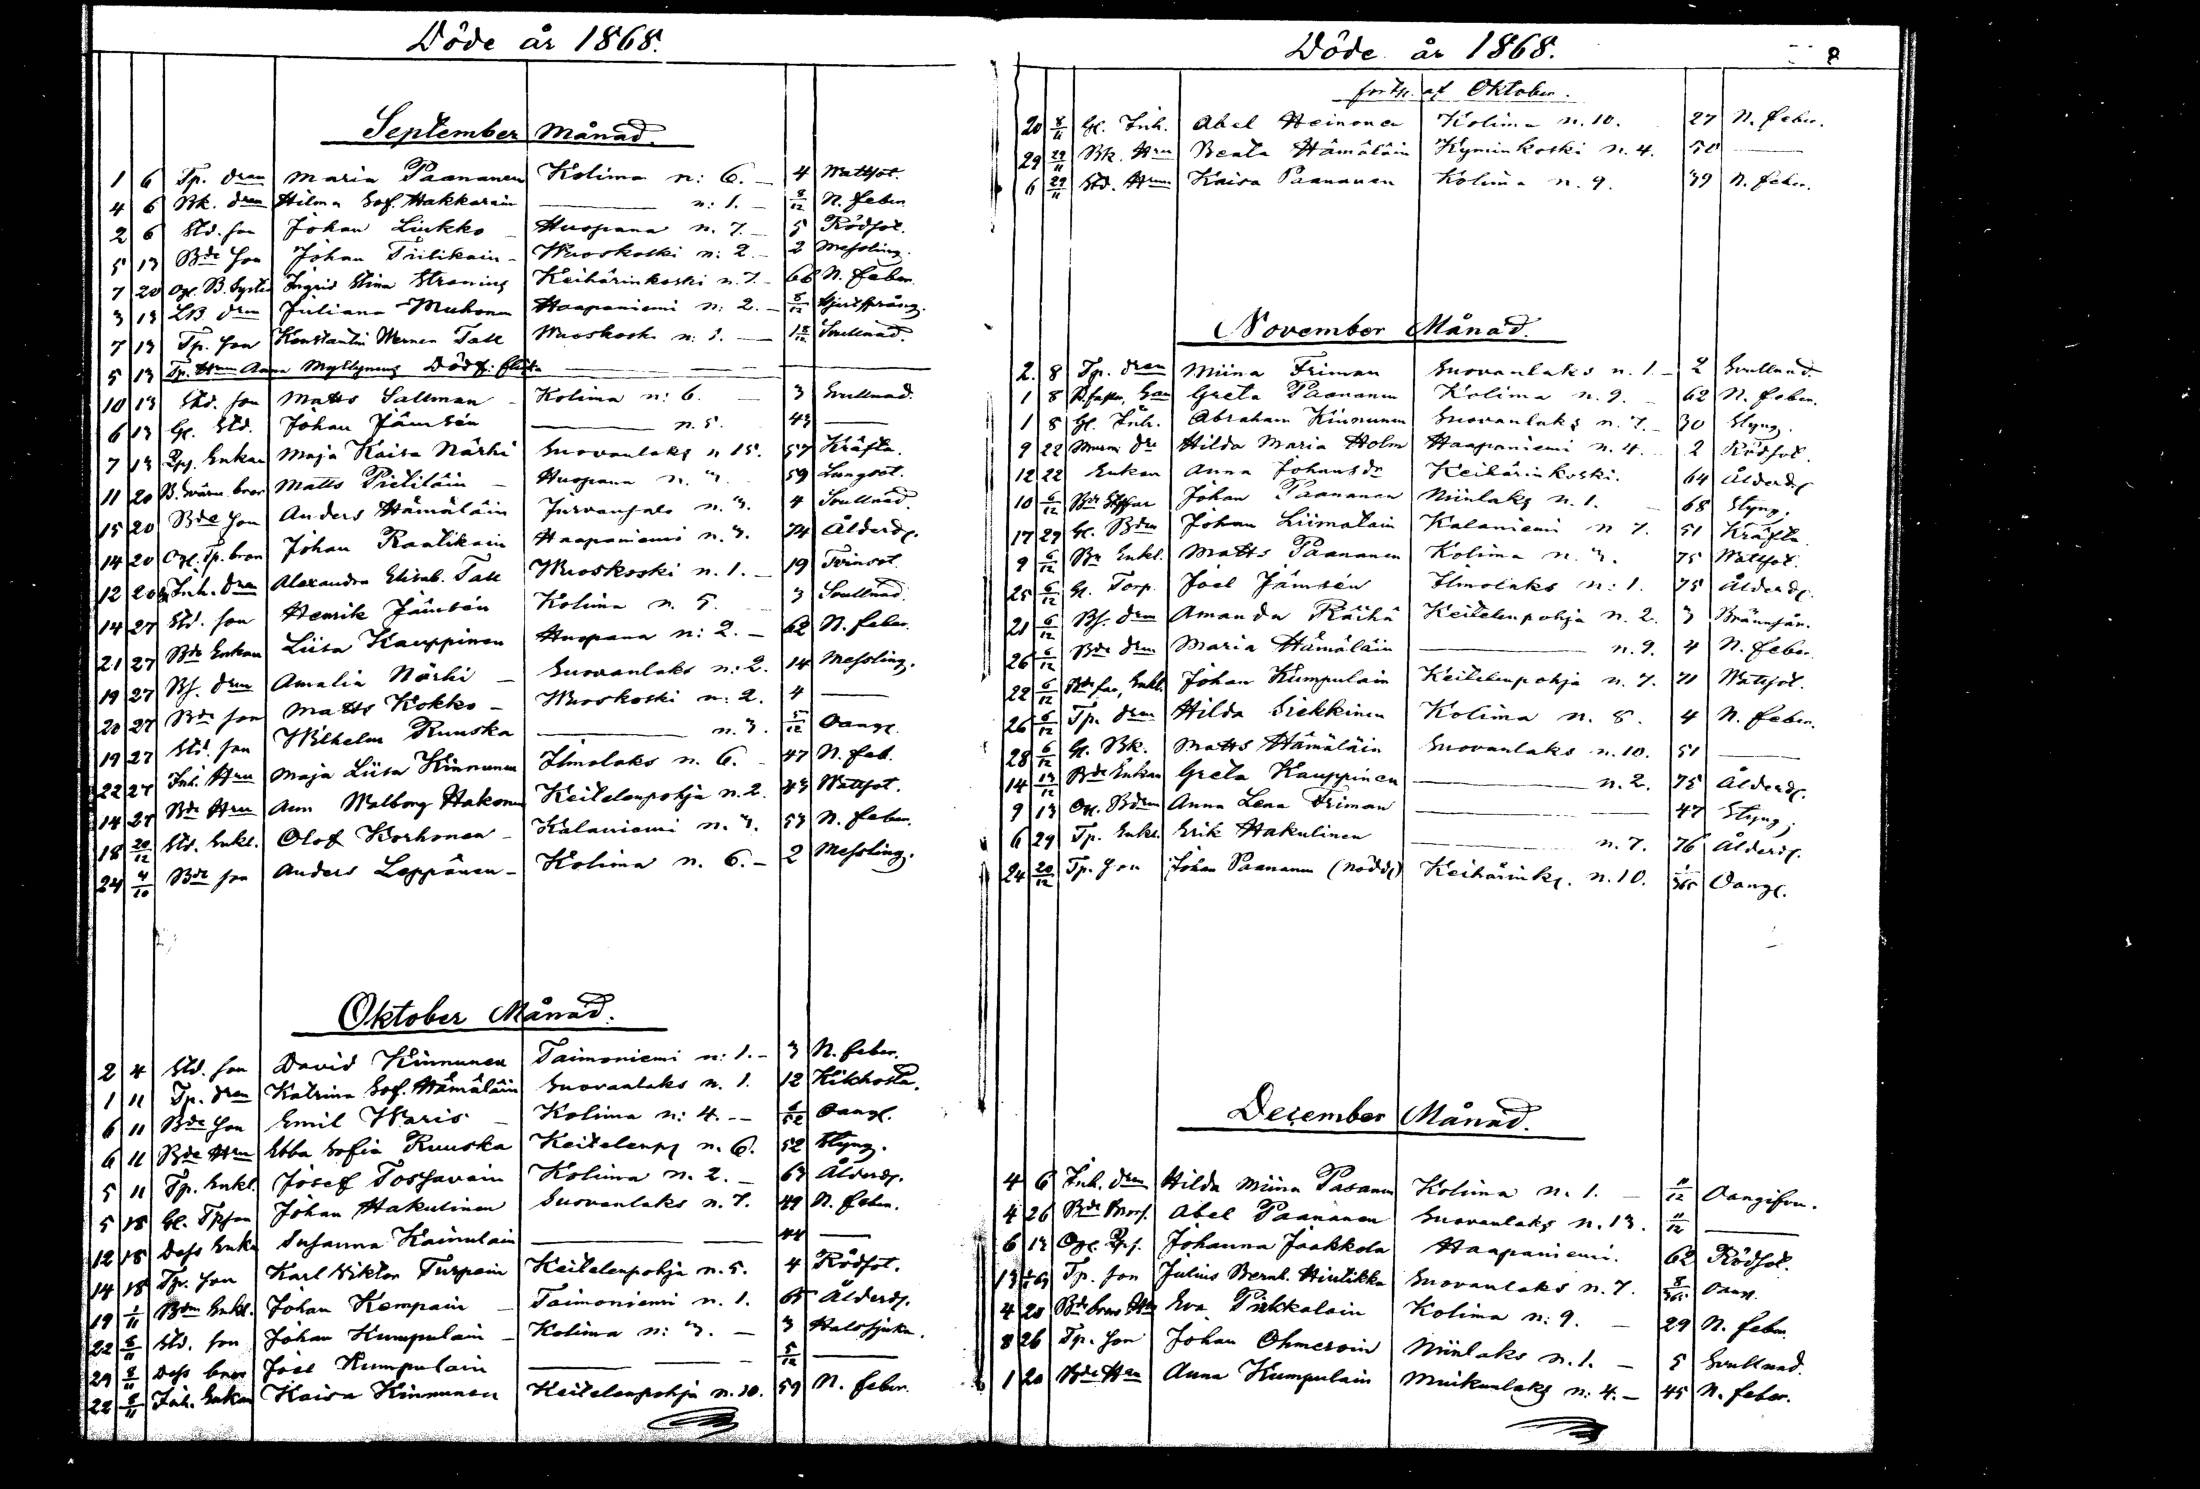 Döde år 1868.
September Månad.
1 6 Tp. dren Maria Paananen Kolima n: 6. — 4 Wattsot.
4 6 Bk. dren Hilma Sof. Hakkarain ——— n: 1. — 8/12 N. feber
2 6 Std. son Johan Liukko — Huopana n. 7. — 5 Rödsot.
5 13 Bde son Johan Tiilikain — Wuoskoski n: 2. — 2 Messling.
7 20 Ingrid Stina Straning Keihärinkoski n. 7. — 66 N. feber.
3 13 LB dren Juliana Muhonen Haapaniemi n: 2. — 8/12
7 13 Tp. son Konstantin Werner Tall Wuoskoski n: 1. — Soullnad.
5 13 Tp. Hrun Anna
10 13 Std. son Matts Sallman — Kolima n: 6. — 3 Svullnad.
6 13 Gl. Std. Johan Jämsén ——— n. 5. 43 ———
7 13 Enkan Maja Kaisa Närhi Suovanlaks n 15. 57 Kräfta.
11 20 Matts Pietiläin — Huopana n. 59 Lungsot.
15 20 Bde son Anders Hämäläin Jurvansalo n. 3. 4 Soullnad.
14 20 Johan Raatikain Haapaniemi n. 3. 74 Ålderds.
12 20 Inh. dren Alexandra Elisab. Tall Wuoskoski n. 1. — 19 Tvinsot.
14 27 Std. son Henrik Jämsén Kolima n. 5. 3 Soullnad.
21 27 Bde Enkan Liisa Kauppinen Huopana n: 2. — 62 N. feber.
19 27 Bs. dren Amalia Närhi — Suovanlaks n: 2. 14 Messling.
20 27 Bde son Matts Kokko — Wuoskoski n: 2. 4 ———
19 27 Std. son Wilhelm Ruuska ——— n. 3. 5/12 Oangf.
22 27 Inh. Hrun Maja Liisa Kinnunen Ilmolaks n. 6. — 47 N. feb.
14 27 Bde Hrun Ann Walborg Hakonen Keitelenpohja n. 2. 43 Wattsot.
18 20/12 Std. Enkl. Olof Korhonen — Kalaniemi n. 3. 53 N. feber.
24 4/10 Bde son Anders Leppänen — Kolima n. 6. — 2 Messling.
Oktober Månad.
2 4 Std. son David Kinnunen Taimoniemi n: 1. — 3 N. feber.
1 11 Tp. dren Katrina Sof. Hämäläin Suovanlaks n. 1. 12 Kikhosta.
6 11 Bde son Emil Waris — Kolima n: 4. — 6/52 Oangf.
6 11 Bde Hrun Ebba Sofia Ruuska Keitelenp n. 6. 52 Styng.
5 11 Tp. Enkl. Josef Tossavain Kolima n. 2. — 63 Ålderds.
5 18 Gl. Tpson Johan Hakulinen Suovanlaks n. 7. 49 N. feber.
12 18 Dess Enka Susanna Kainulain ——— ——— 44 ———
14 18 Tp. son Karl Viktor Turpein Keitelenpohja n. 5. 4 Rödsot.
19 1/11 Bdm Enkl. Johan Kempain — Taimoniemi n. 1. 65 Ålderds.
22 8/11 Std. son Johan Kumpulain — Kolima n: 3. — 3 Halssjuka.
29 8/11 Dess bror Joel Kumpulain ——— ——— 5/12 ———
22 8/11 Inh. Enkan Kaisa Kinnunen Keitelenpohja n. 10. 59 N. feber.
Döde år 1868.
8
forts. af Oktober.
20 8/11 Gl. Inh. Abel Heinonen Kolima n. 10. 27 N. feber.
29 29/11 Bk. Hrun Beata Hämäläin Kyminkoski n. 4. 50 ———
6 29/11 Std. Hrun Kaisa Paananen Kolima n. 9. 39 N. feber.
November Månad.
2. 8 Tp. dren Miina Friman Suovanlaks n. 1. — 2 Svullnad.
1 8 Greta Paananen Kolima n. 9. — 62 N. feber.
1 8 Gl. Inh. Abraham Kinnunen Suovanlaks n. 7. — 30 Styng.
9 22 Hilda Maria Holm Haapaniemi n. 4. — 2 Rödsot.
12 22 Enkan Anna Johansdr Keihärinkoski. 64 Ålderds
10 6/12 Johan Paananen Niinlaks n. 1. — 68 Styng.
17 29 Gl. Bden Johan Liimatain Kalaniemi n 7. 51 Kräfta
9 6/12 Bde Enkl. Matts Paananen Kolima n. 3. 75 Wattsot.
25 6/12 Gl. Torp. Joel Jämsén Ilmolaks n: 1. 75 Ålderds.
21 6/12 Bs. dren Amanda Räihä Keitelenpohja n. 2. 3 Brännsår.
26 6/12 Bde dren Maria Hämäläin ——— n. 9. 4 N. feber.
22 6/12 Enkl. Johan Kumpulain Keitelenpohja n. 7. 71 Wattsot.
26 6/12 Tp. dren Hilda Siekkinen Kolima n. 8. 4 N. feber.
28 6/12 Gl. Bk. Matts Hämäläin Suovanlaks n. 10. 51 ———
14 13/12 Bde Enkan Greta Kauppinen ——— n. 2. 75 Ålderds.
9 13 Anna Lena Friman ——— 47 Styng.
6 29 Tp. Enkl. Erik Hakulinen ——— n. 7. 76 Ålderds.
24 20/12 Tp. son Johan Paananen (nöddö) Keihärinks. n. 10. 1/365 Oangf.
December Månad.
4 6 Inh. dren Hilda Miina Pasanen Kolima n. 1. — 11/12 Oangifven.
4 26 Abel Paananen Suovanlaks n. 13. 11/12 ———
6 13 Johanna Jaakkola Haapaniemi. 62 Rödsot.
13 Tp. son Julius Bernh. Hintikka Suovanlaks n. 7. 8/365 Oangf.
4 20 Eva Pirkkalain Kolima n: 9. — 29 N. feber.
8 26 Tp. son Johan Ohmeroin Niinlaks n. 1. — 5 Svullnad.
1 20 Bde Hrun Anna Kumpulain Muikunlaks n: 4. — 45 N. feber.